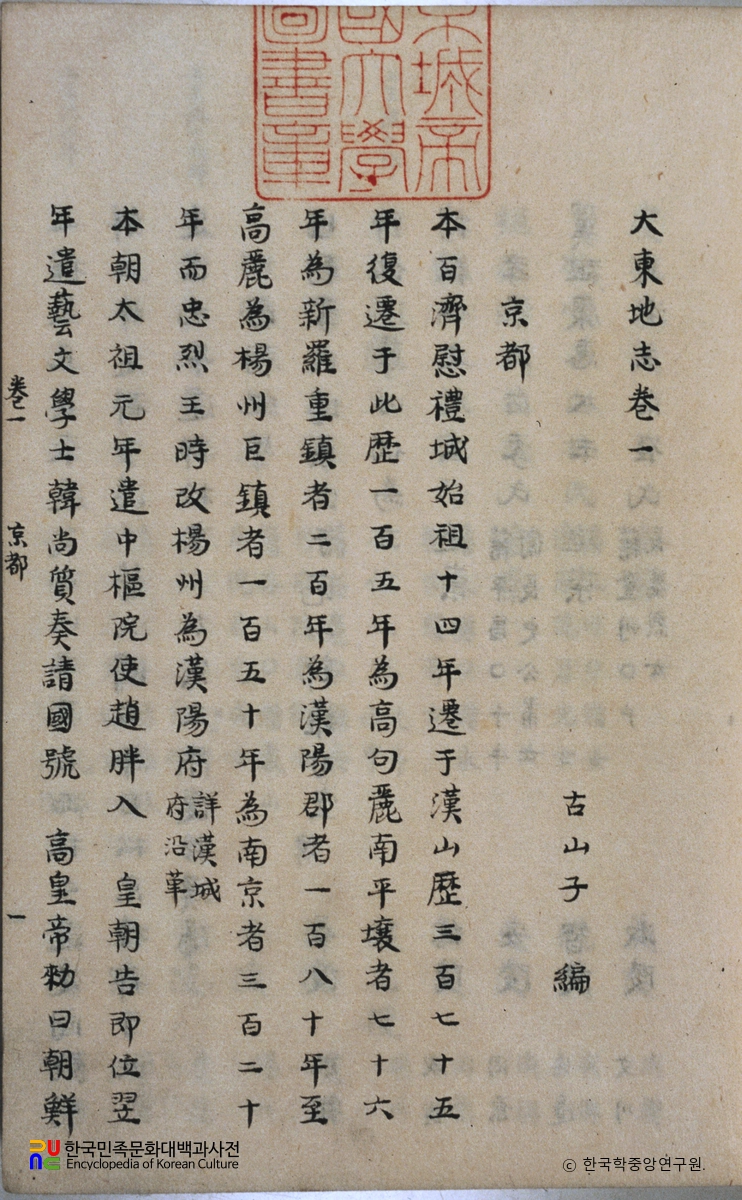 城帝
國大學
圖書章
大東地志卷一
古山子編
京都
本百濟慰禮城始祖十四年遷于漢山歷三百七十五
年復遷于此歷一百五年為高句麗南平壤者七十六
年為新羅重鎮者二百年為漢陽郡者一百八十年至
高麗為楊州巨鎮者一百五十年為南京者三百二十
年而忠烈王時改楊州為漢陽府詳漢城府沿革
本朝太祖元年遣中樞院使趙胖入 皇朝告即位翌
年遣藝文學士韓尚質奏請國號 高皇帝勑曰朝鮮
卷一 京都 一
한국민족문화대백과사전
Encyclopedia of Korean Culture
ⓒ 한국학중앙연구원.